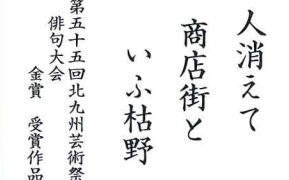 人消えて
商店街と
いふ枯野
第五十五回北九州芸術祭
俳句大会
金賞　受賞作品